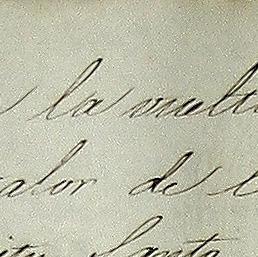 la vuelt
alor de
Santo